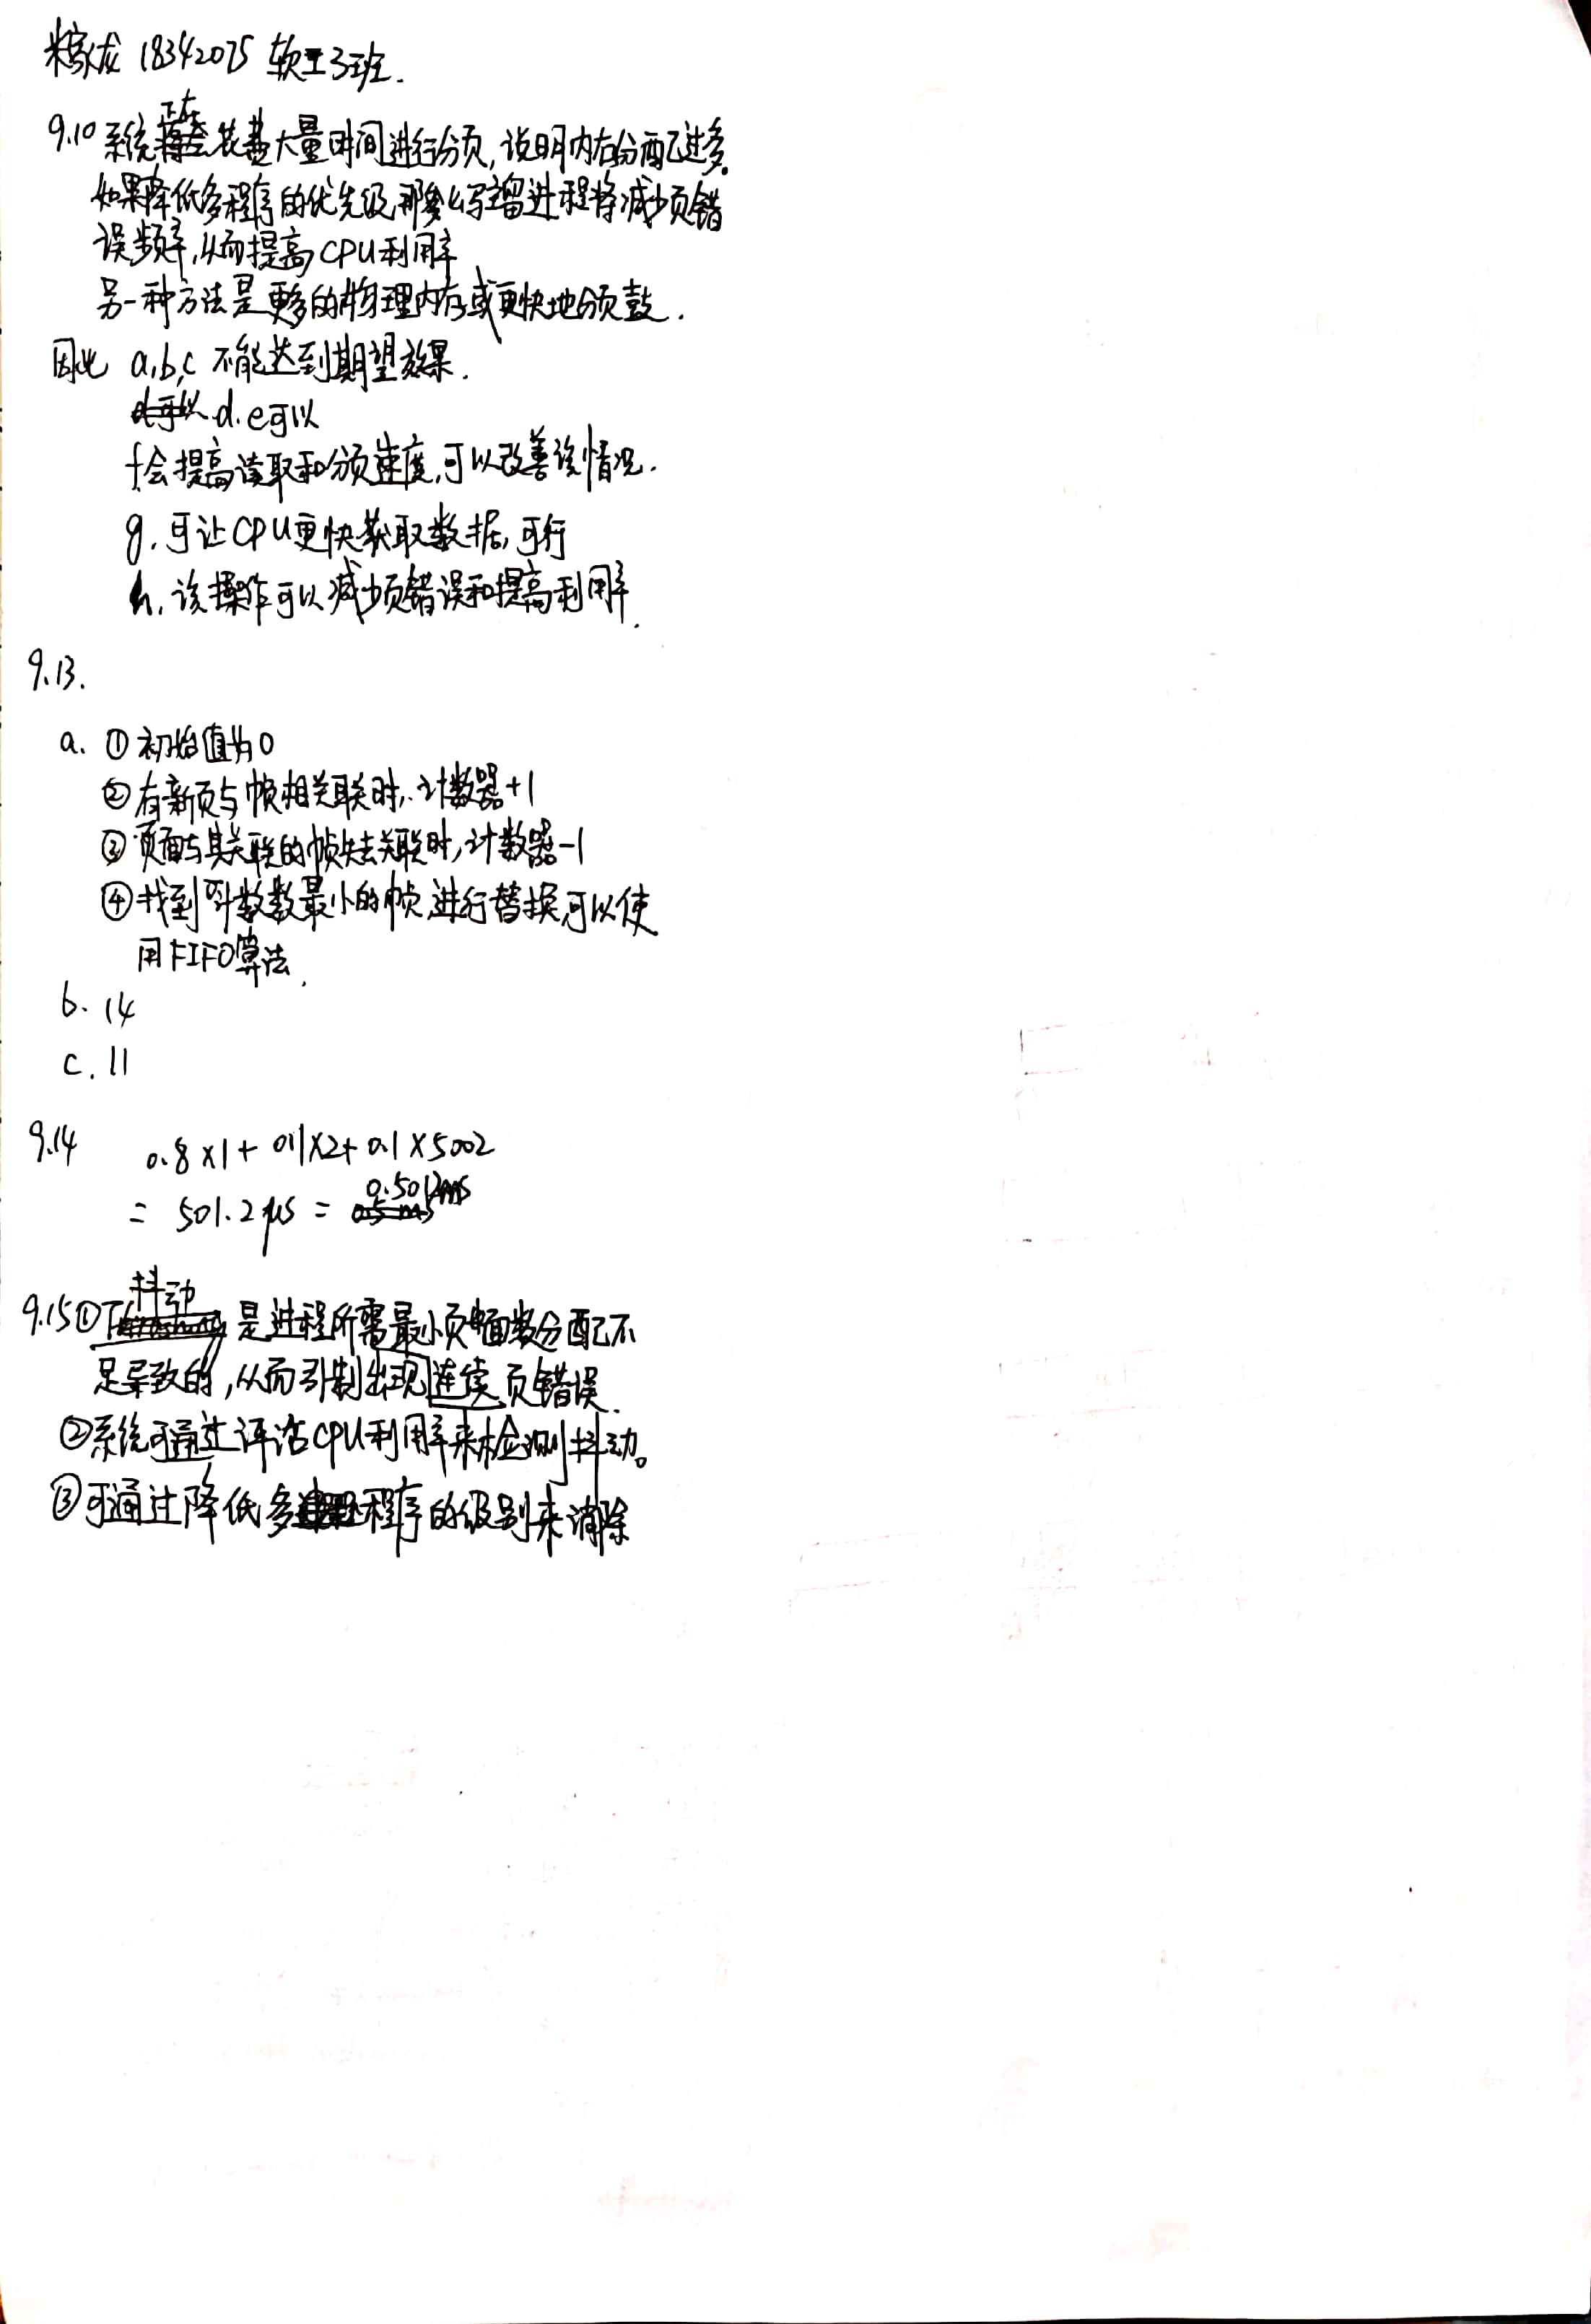 18342075 软工3班.
9.10 系统正在花费大量时间进行分页,说明内存分配过多.
如果降低多程序的优先级,那么驻留进程将减少页错
误频率,从而提高CPU利用率
另一种方法是更多的物理内存或更快地分页鼓.
因此 a,b,c 不能达到期望效果.
d.e可以
f会提高读取和分页速度,可以改善该情况.
g.可让CPU更快获取数据,可行
h.该操作可以减少页错误和提高利用率.
9.13.
a. ①初始值为0
②有新页与帧相关联时,计数器+1
③页面与其关联的帧失去关联时,计数器-1
④找到计数最小的帧进行替换,可以使
用FIFO算法.
b. 14
c. 11
9.14 0.8×1+0.1×2+0.1×5002
= 501.2μs = 0.5012ms
9.15①抖动是进程所需最小页面数分配不
足导致的,从而引制出现连续页错误.
②系统可通过评估CPU利用率来检测抖动。
③可通过降低多程序的级别来消除